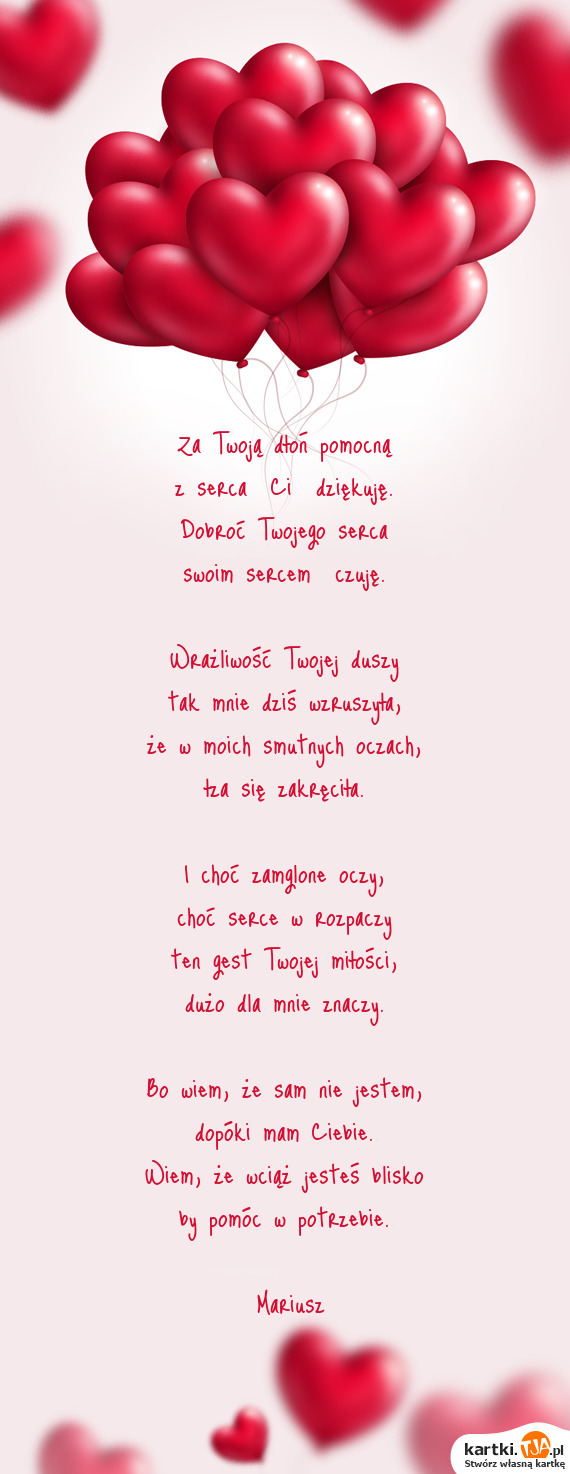 Za Twoją dłoń pomocną
z serca Ci dziękuję.
Dobroć Twojego serca
swoim sercem czuję.

Wrażliwość Twojej duszy
tak mnie dziś wzruszyła,
że w moich smutnych oczach,
łza się zakręciła.

I choć zamglone oczy,
choć serce w rozpaczy
ten gest Twojej miłości,
dużo dla mnie znaczy.

Bo wiem, że sam nie jestem,
dopóki mam Ciebie.
Wiem, że wciąż jesteś blisko
by pomóc w potrzebie.

Mariusz

kartki.TJA.pl
Stwórz własną kartkę